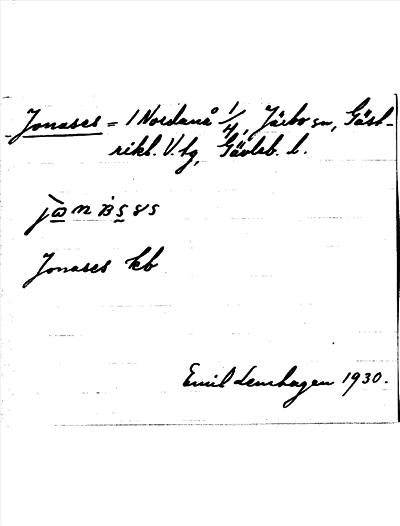 Jonases = 1 Nordanå 1/4, Järbo sn, Gäst-
rikl. V. tg, Gävleb. l.
Jonases kb
Emil Lenhagen 1930.